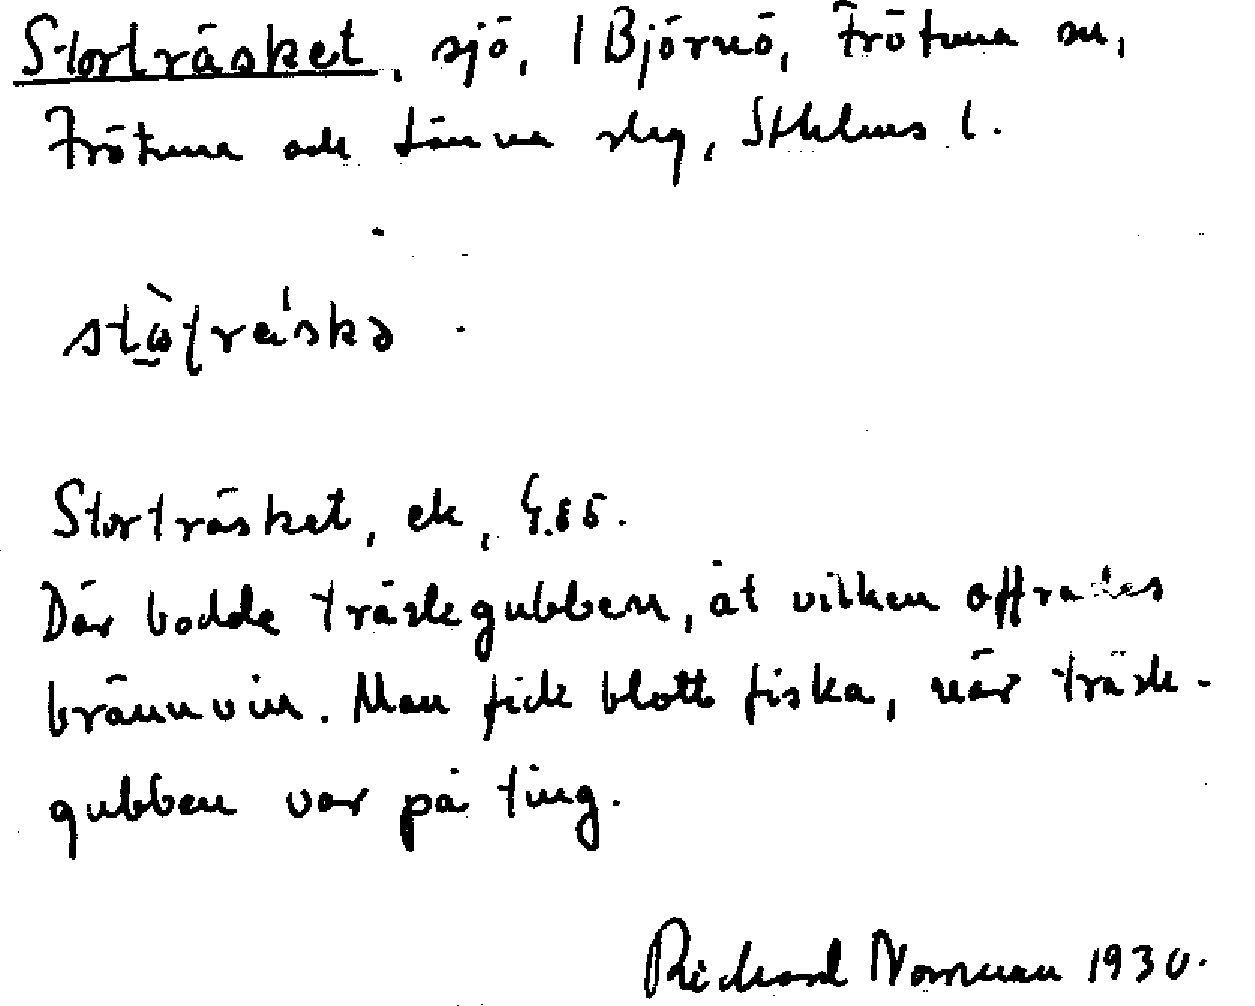 Storträsket, sjö, 1 Björnö, Frötuna sn,
Frötuna och Länna slg, Sthlms l.
Storträsket, ek,
Där bodde träskgubben, åt vilken offrades
brännvin. Man fick blott fiska, när träsk-
gubben var på ting.
Richard Norrman 1930.